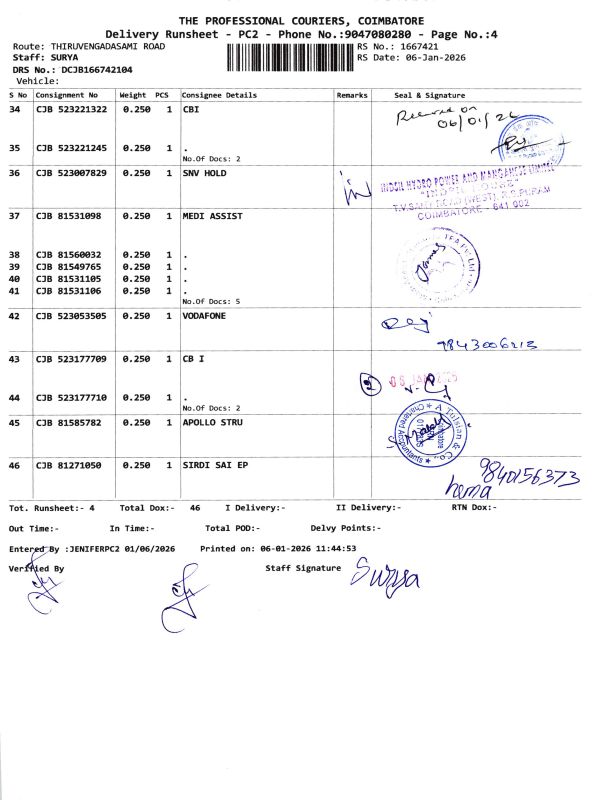 THE PROFESSIONAL COURIERS, COIMBATORE
Delivery Runsheet - PC2 - Phone No.:9047080280 - Page No.:4
Route: THIRUVENGADASAMI ROAD RS No.: 1667421
Staff: SURYA RS Date: 06-Jan-2026
DRS No.: DCJB166742104
Vehicle:
S No Consignment No Weight PCS Consignee Details Remarks Seal & Signature
34 CJB 523221322 0.250 1 CBI
Received on
06/01/26
35 CJB 523221245 0.250 1 .
No.Of Docs: 2
36 CJB 523007829 0.250 1 SNV HOLD
INDSIL HYDRO POWER AND MANGANESE LIMITED
"INDSIL HOUSE"
T.V.SAMY ROAD (WEST), R.S.PURAM
COIMBATORE - 641 002
37 CJB 81531098 0.250 1 MEDI ASSIST
38 CJB 81560032 0.250 1 .
39 CJB 81549765 0.250 1 .
40 CJB 81531105 0.250 1 .
41 CJB 81531106 0.250 1 .
No.Of Docs: 5
TPA Pvt Ltd
42 CJB 523053505 0.250 1 VODAFONE
9843006213
43 CJB 523177709 0.250 1 CB I
2
44 CJB 523177710 0.250 1 .
No.Of Docs: 2
45 CJB 81585782 0.250 1 APOLLO STRU
A Tulsian & Co.,
Chartered Accountants
46 CJB 81271050 0.250 1 SIRDI SAI EP
9840156373
hema
Tot. Runsheet:- 4 Total Dox:- 46 I Delivery:- II Delivery:- RTN Dox:-
Out Time:- In Time:- Total POD:- Delvy Points:-
Entered By :JENIFERPC2 01/06/2026 Printed on: 06-01-2026 11:44:53
Verified By Staff Signature Surya